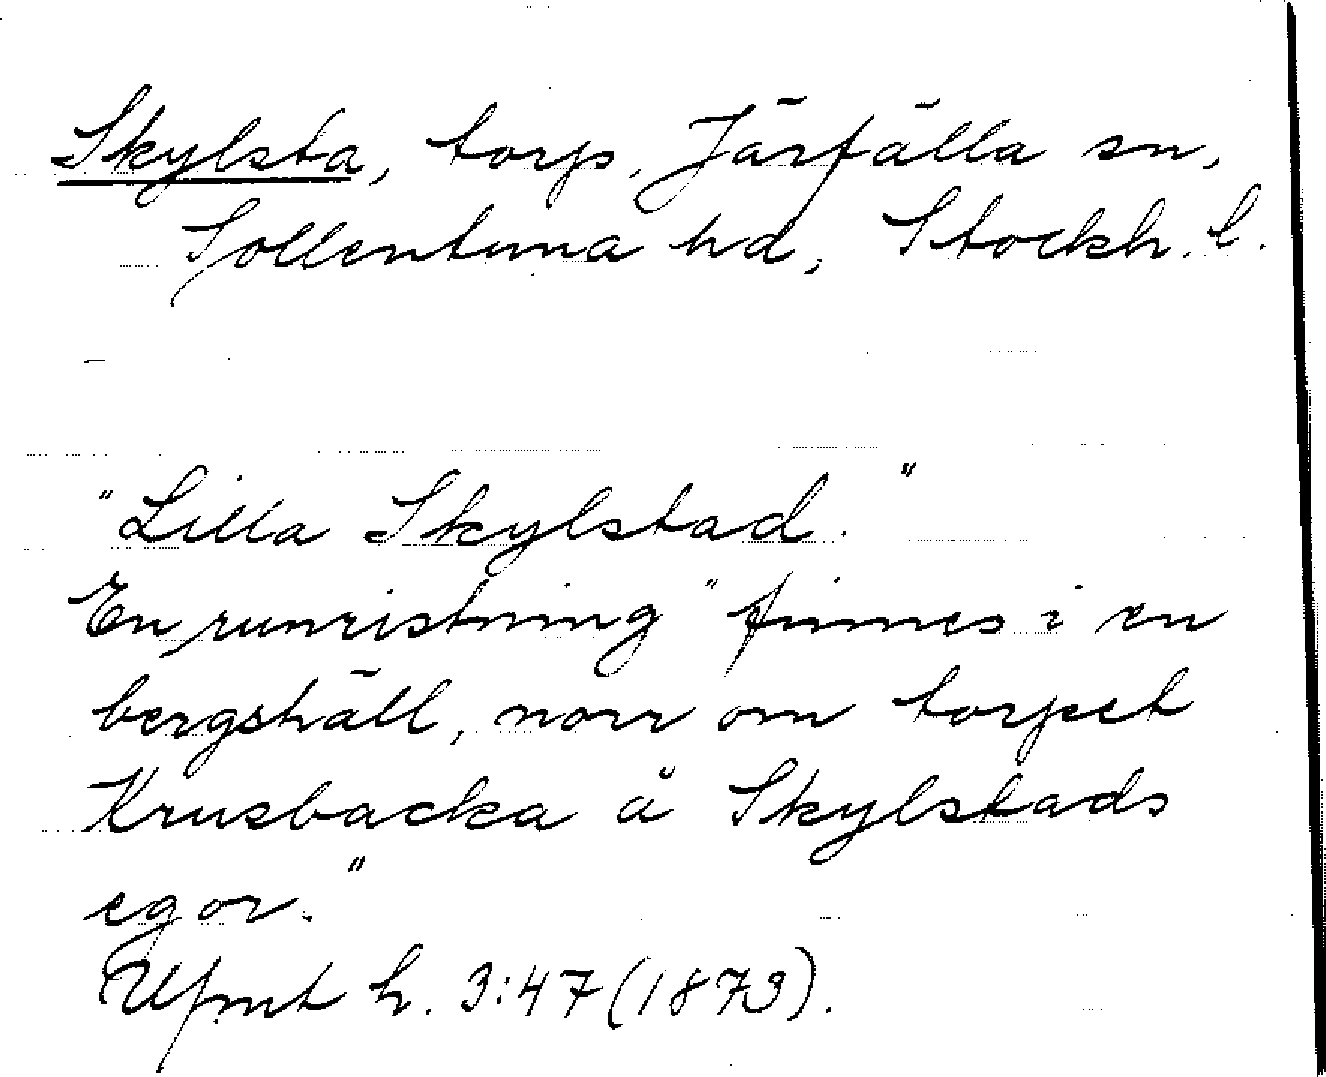 Skylsta, torp, Järfälla sn,
Sollentuna hd, Stockh. l.
"Lilla Skylstad."
En runristning "finnes i en
bergshäll, norr om torpet
Krusbacka å Skylstads
egor."
Upmt h. 3:47 (1873).